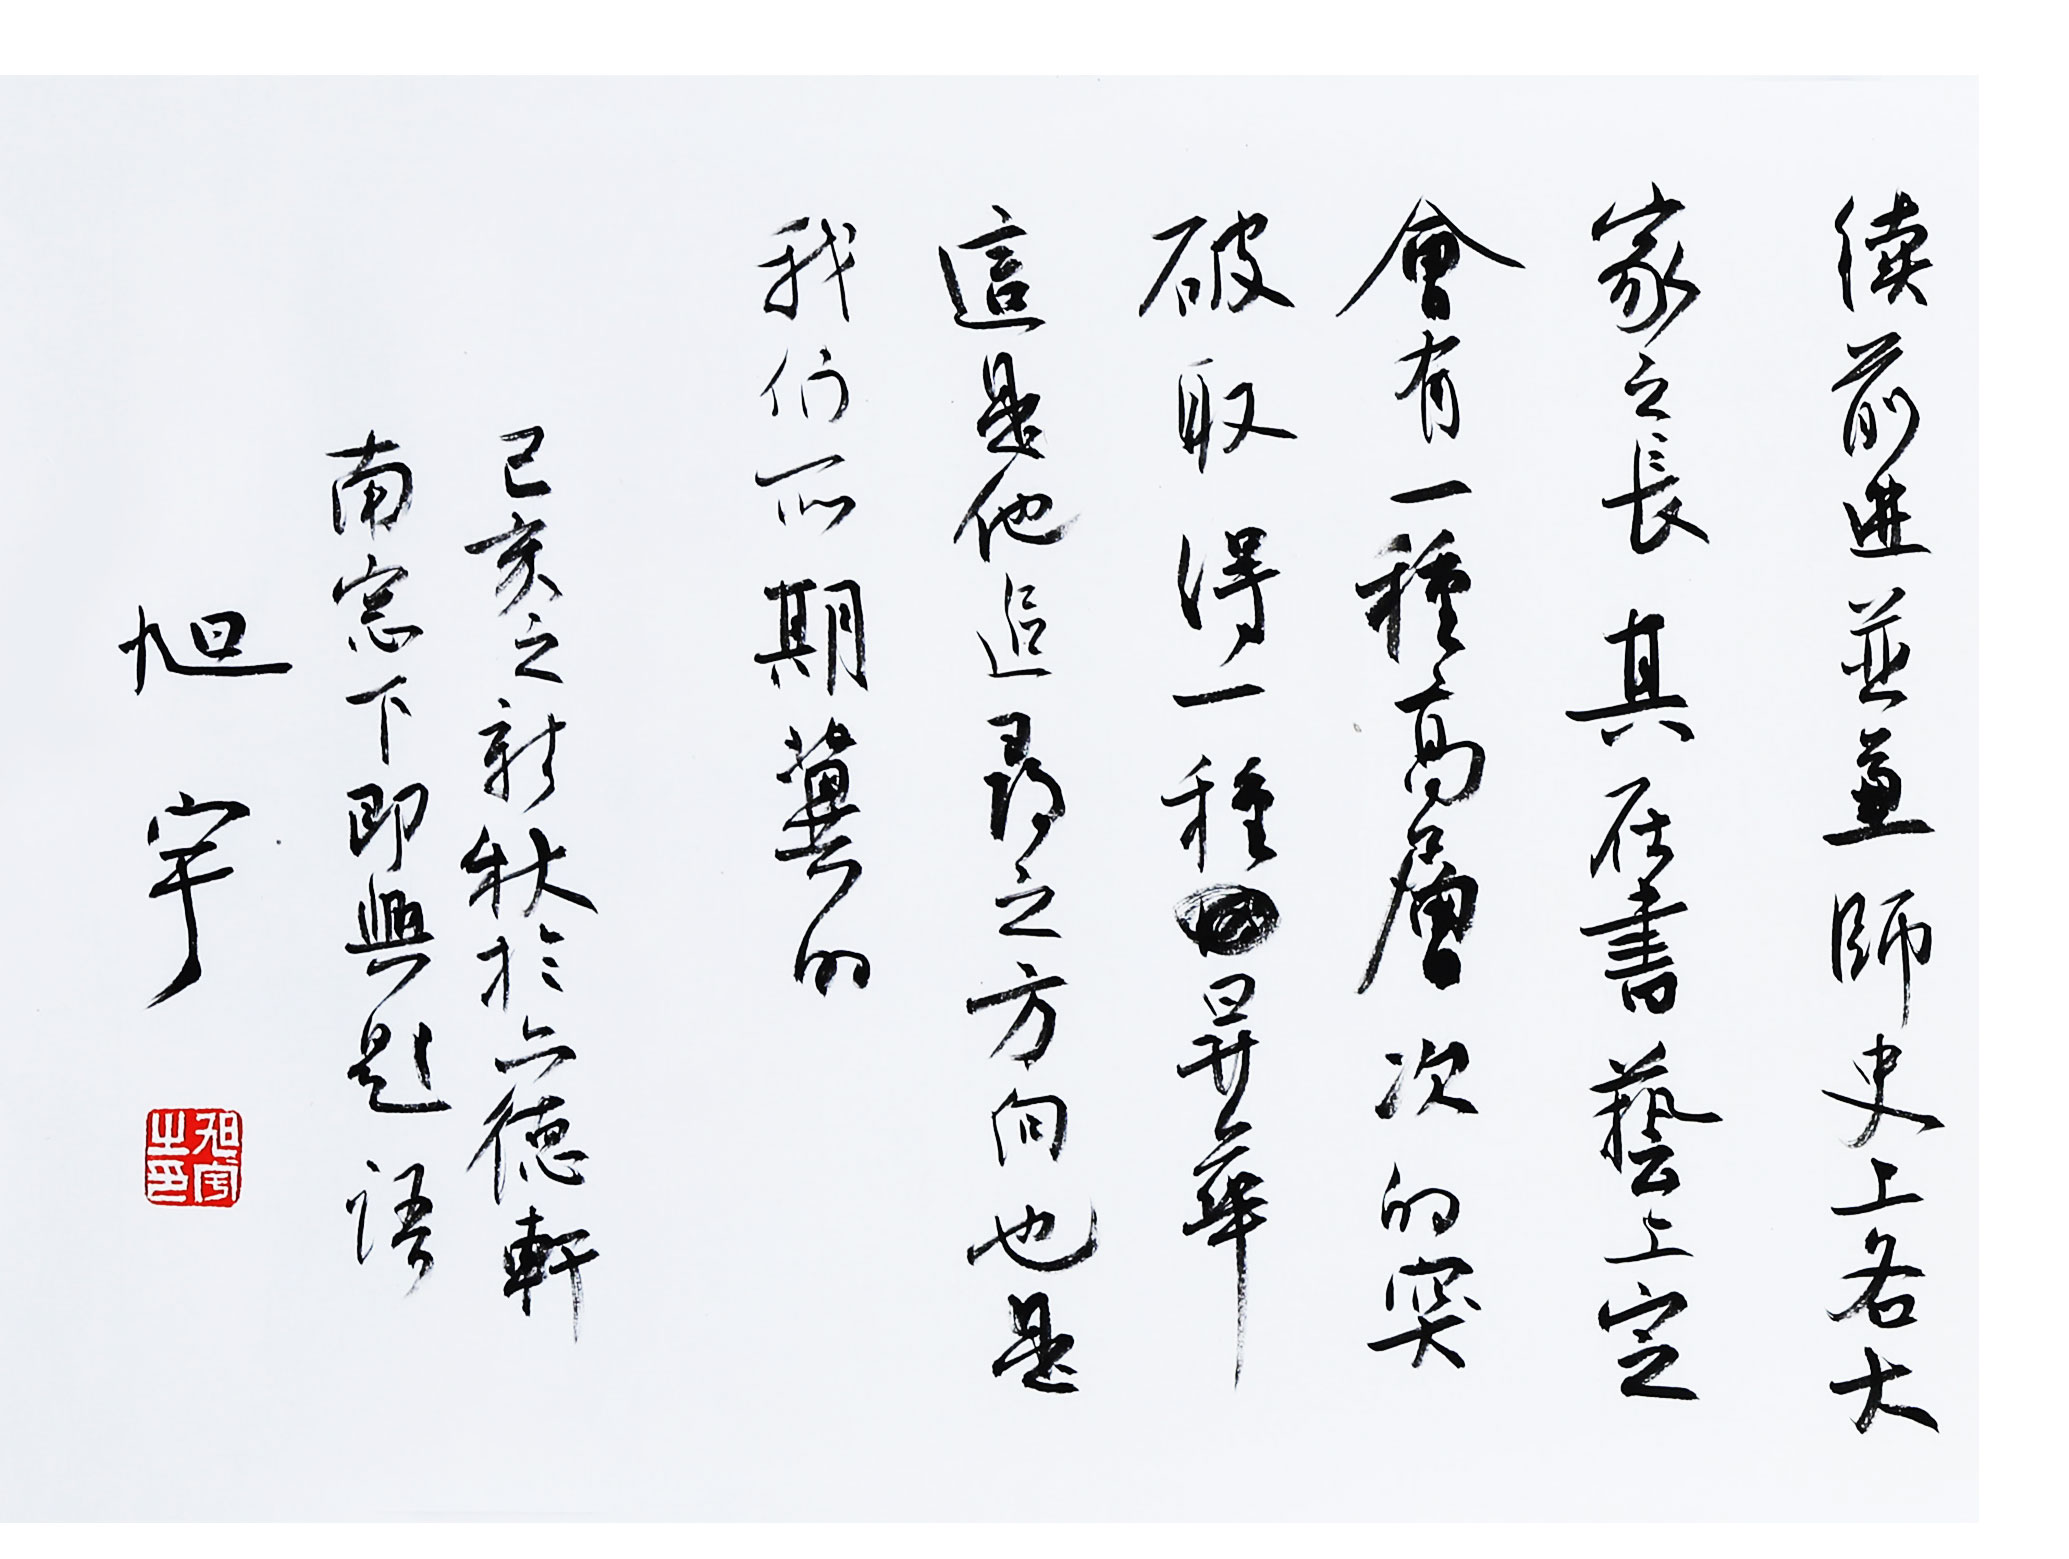 续前进並兼師史上各大
家之長其在書藝上定
會有一種高層次的突
破取得一種昇華
這是他追尋之方向也是
我们所期冀的
己亥之新秋於六德軒
南窓下即興題語
旭宇
旭宇之印